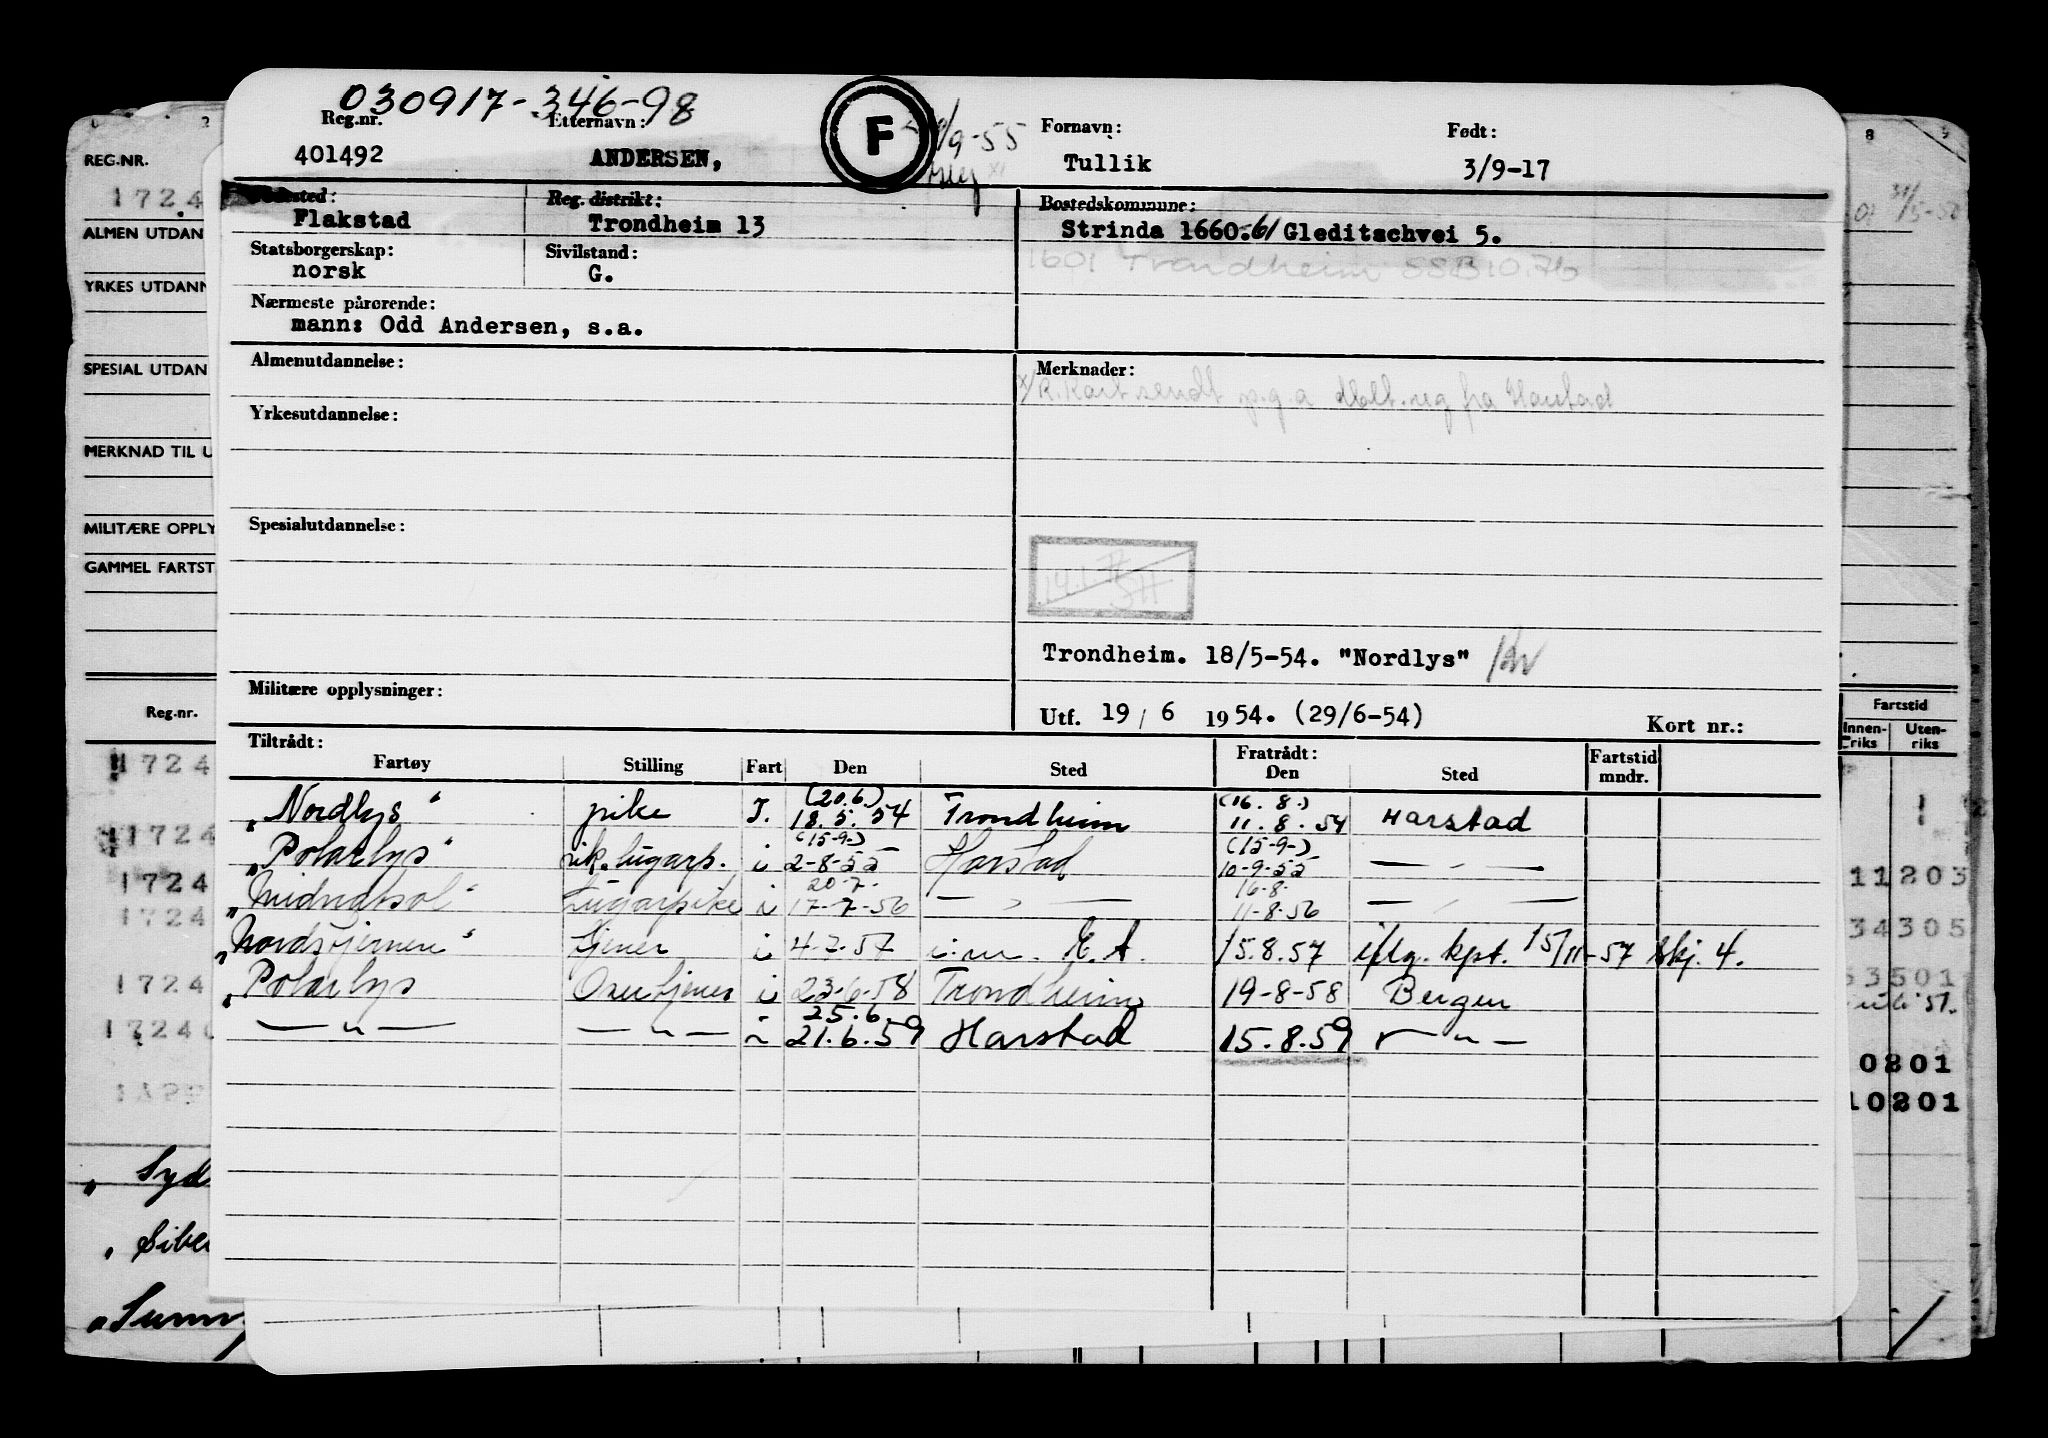 030917-346-98
Reg.nr. Etternavn: Fornavn: Født:
401492 ANDERSEN, F /9-55 Tullik 3/9-17
Reg. distrikt: Bostedskommune:
Flakstad Trondheim 13 Strinda 1660.61 Gleditschvei 5.
Statsborgerskap: Sivilstand: 1601 Trondheim SSB 10.76
norsk G.
Nærmeste pårørende:
mann: Odd Andersen, s.a.
Almenutdannelse: Merknader:
x/R.Kart sendt p.g.a dblt.reg fra Harstad
Yrkesutdannelse:
Spesialutdannelse:
Trondheim. 18/5-54. "Nordlys"
Militære opplysninger:
Utf. 19 / 6 1954. (29/6-54) Kort nr.:
Tiltrådt: Fratrådt: Fartstid mndr.
Fartøy Stilling Fart Den Sted Den Sted
(20.6.) (16.8.)
„Nordlys" pike I. 18.5.54 Trondheim 11.8.54 Harstad
(15-9-) (15-9-)
„Polarlys" lugarp. i 2-8-55 Harstad 10-9-55 — " —
20-7- 16-8-
„Midnatsol" Lugarpike i 17-7-56 — " — 11-8-56 — " —
„Nordstjernen" tjener i 4-7-57 i.m. E.A. 15.8.57 iflg. kpt. 15/11-57 skj. 4.
„Polarlys Overtjener i 23-6-58 Trondheim 19-8-58 Bergen
25.6.
— " — — " — i 21.6.59 Harstad 15.8.59 — " —
REG.NR.
1724
ALMEN UTDAN
YRKES UTDANN
SPESIAL UTDAN
MERKNAD TIL U
MILITÆRE OPPLY
GAMMEL FARTST
Reg-nr.
1724
1724
1724
1724
1724
1724
„ Syd
„ Sibe
„ Sunn
8
31/5-5
Fartstid
Innen-riks Uten-riks
11203
34305
53501
0201
10201